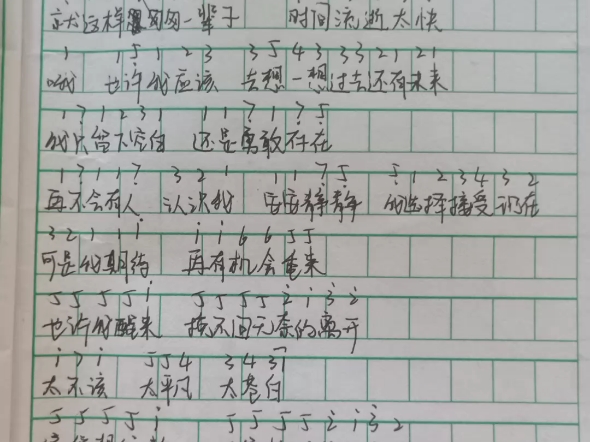 就这样匆匆一辈子 时间流逝太快
1 1 5 1 2 3 3 5 4 3 3 3 2 1 2 1
哦 也许我应该 去想一想过去还有未来
1 7 1 2 3 1 1 1 7 1 7 5
我只留下空白 还是勇敢存在
1 7 1 1 7 3 2 1 1 1 7 5 5 1 2 3 4 3 2
再不会有人 认识我 安安静静 的选择接受 现在
3 2 1 1 i i i 6 6 5 5
可是我期待 再有机会重来
5 5 5 5 i 5 5 5 5 2 i 3 2
也许我醒来 挨不间无奈的离开
i 7 i 5 5 4 3 4 3 1
太不该 太平凡 太苍白
5 5 5 5 i 5 5 5 5 2 i 3 2